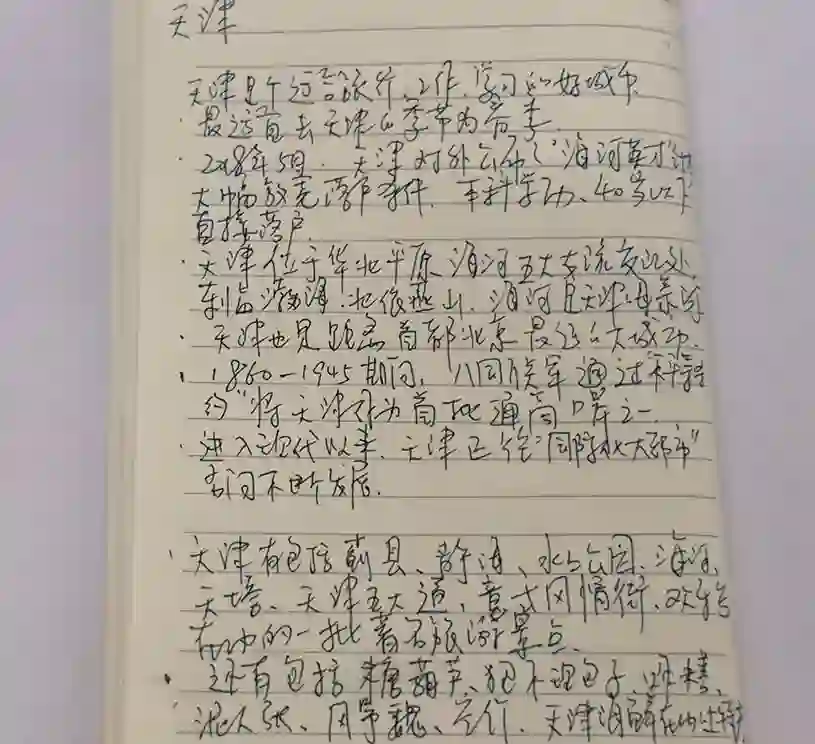 天津
天津是个适合旅行、工作、学习的好城市
· 最适宜去天津的季节为春季
· 2018年5月,天津对外公布了"海河英才"计
大幅放宽落户条件,本科学历、40岁以下
直接落户.
· 天津位于华北平原海河五大支流交汇处,
东临渤海,北依燕山,海河是天津母亲河
· 天津也是距离首都北京最近的大城市.
· 1860-1945期间,八国联军通过
约"将天津作为首批通商口岸之一.
· 进入现代以来,天津正往"国际化大都市"
方向不断发展.
· 天津有包括蓟县、静海、水上公园、海河、
天塔、天津五大道、意式风情街、欢乐谷
在内的一批著名旅游景点.
· 还有包括糖葫芦、狗不理包子、
泥人张、风筝魏、 天津海鲜在内